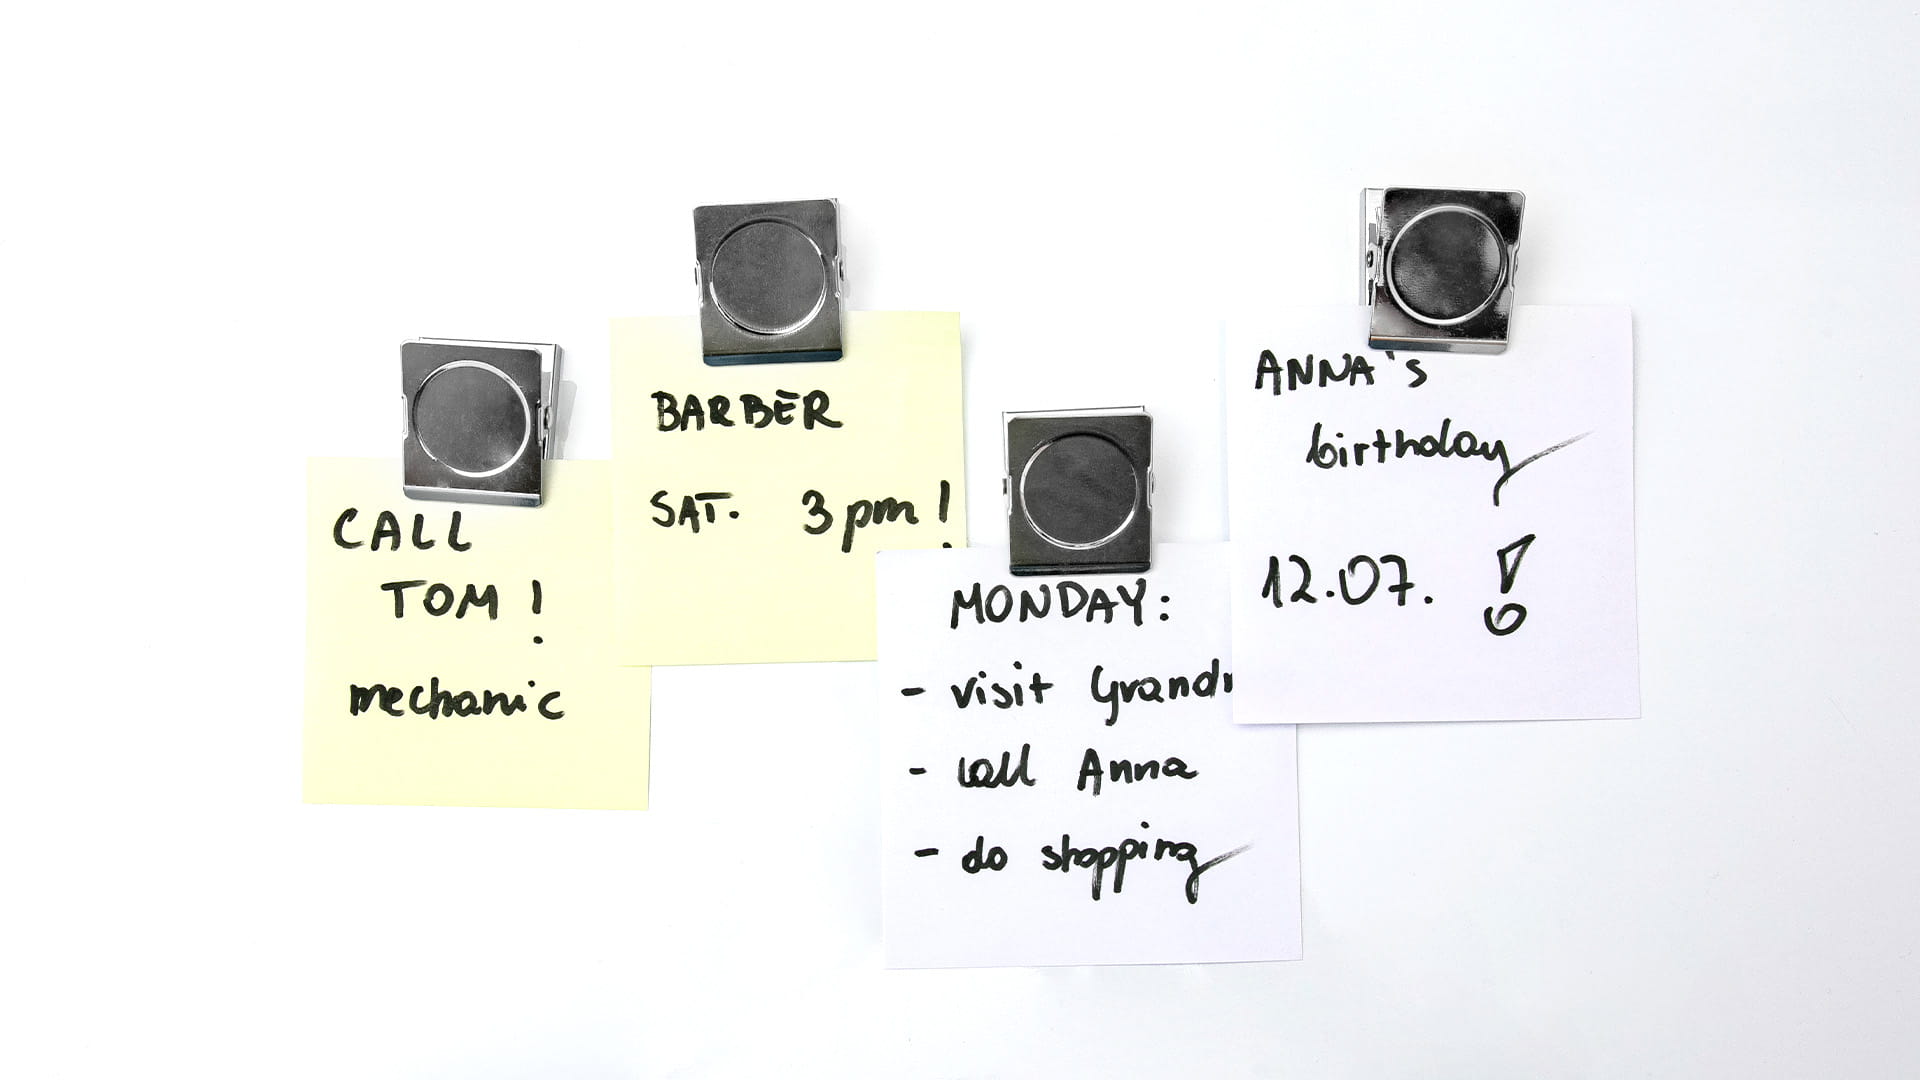 CALL
TOM!
mechanic
BARBER
SAT. 3pm!
MONDAY:
- visit
- call Anna
- do shopping
ANNA's
birthday
12.07. !